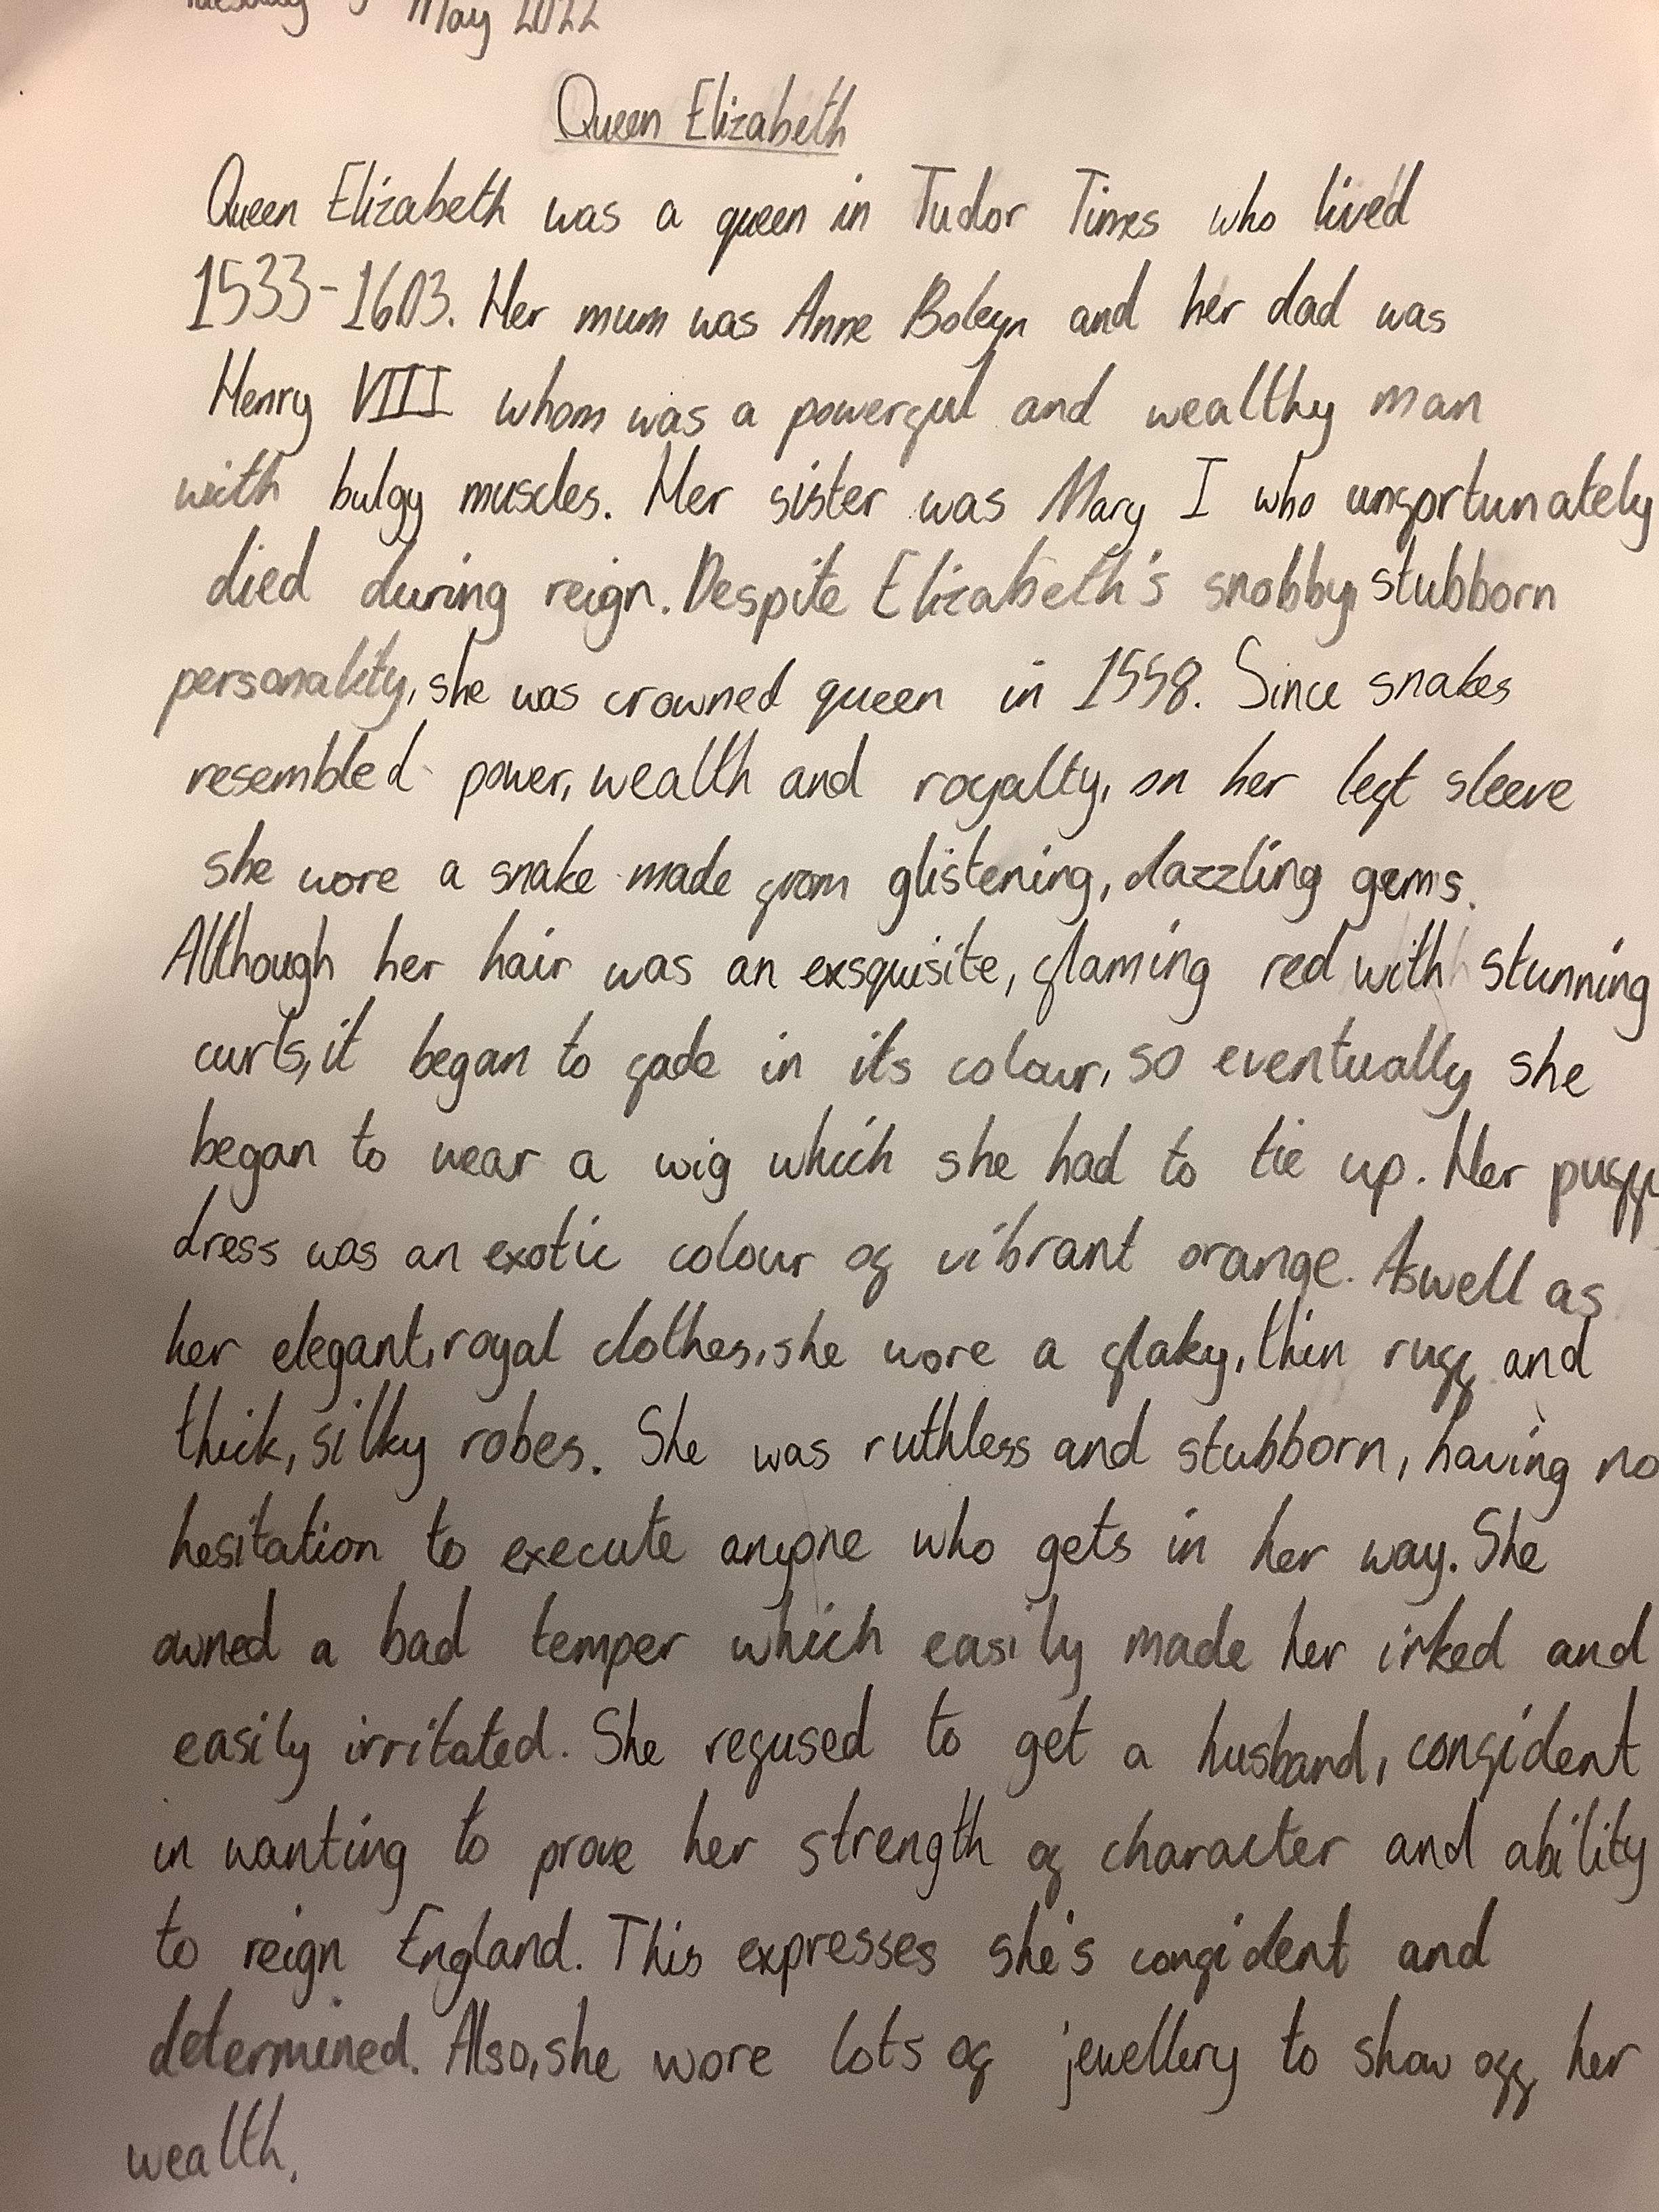 May 2022
Queen Elizabeth
Queen Elizabeth was a queen in Tudor Times who lived
1533-1603. Her mum was Anne Boleyn and her dad was
Henry VIII whom was a powerful and wealthy man
with bulgy muscles. Her sister was Mary I who unfortunately
died during reign. Despite Elizabeth's snobby, stubborn
personality, she was crowned queen in 1558. Since snakes
resembled power, wealth and royalty, on her left sleeve
she wore a snake made from glistening, dazzling gems.
Although her hair was an exsquisite, flaming red with stunning
curls, it began to fade in its colour, so eventually she
began to wear a wig which she had to tie up. Her
dress was an exotic colour of vibrant orange. Aswell as
her elegant, royal clothes, she wore a flaky, thin ruff and
thick, silky robes. She was ruthless and stubborn, having no
hesitation to execute anyone who gets in her way. She
owned a bad temper which easily made her irked and
easily irritated. She refused to get a husband, confident
in wanting to prove her strength of character and ability
to reign England. This expresses she's confident and
determined. Also, she wore lots of jewellery to show off her
wealth.